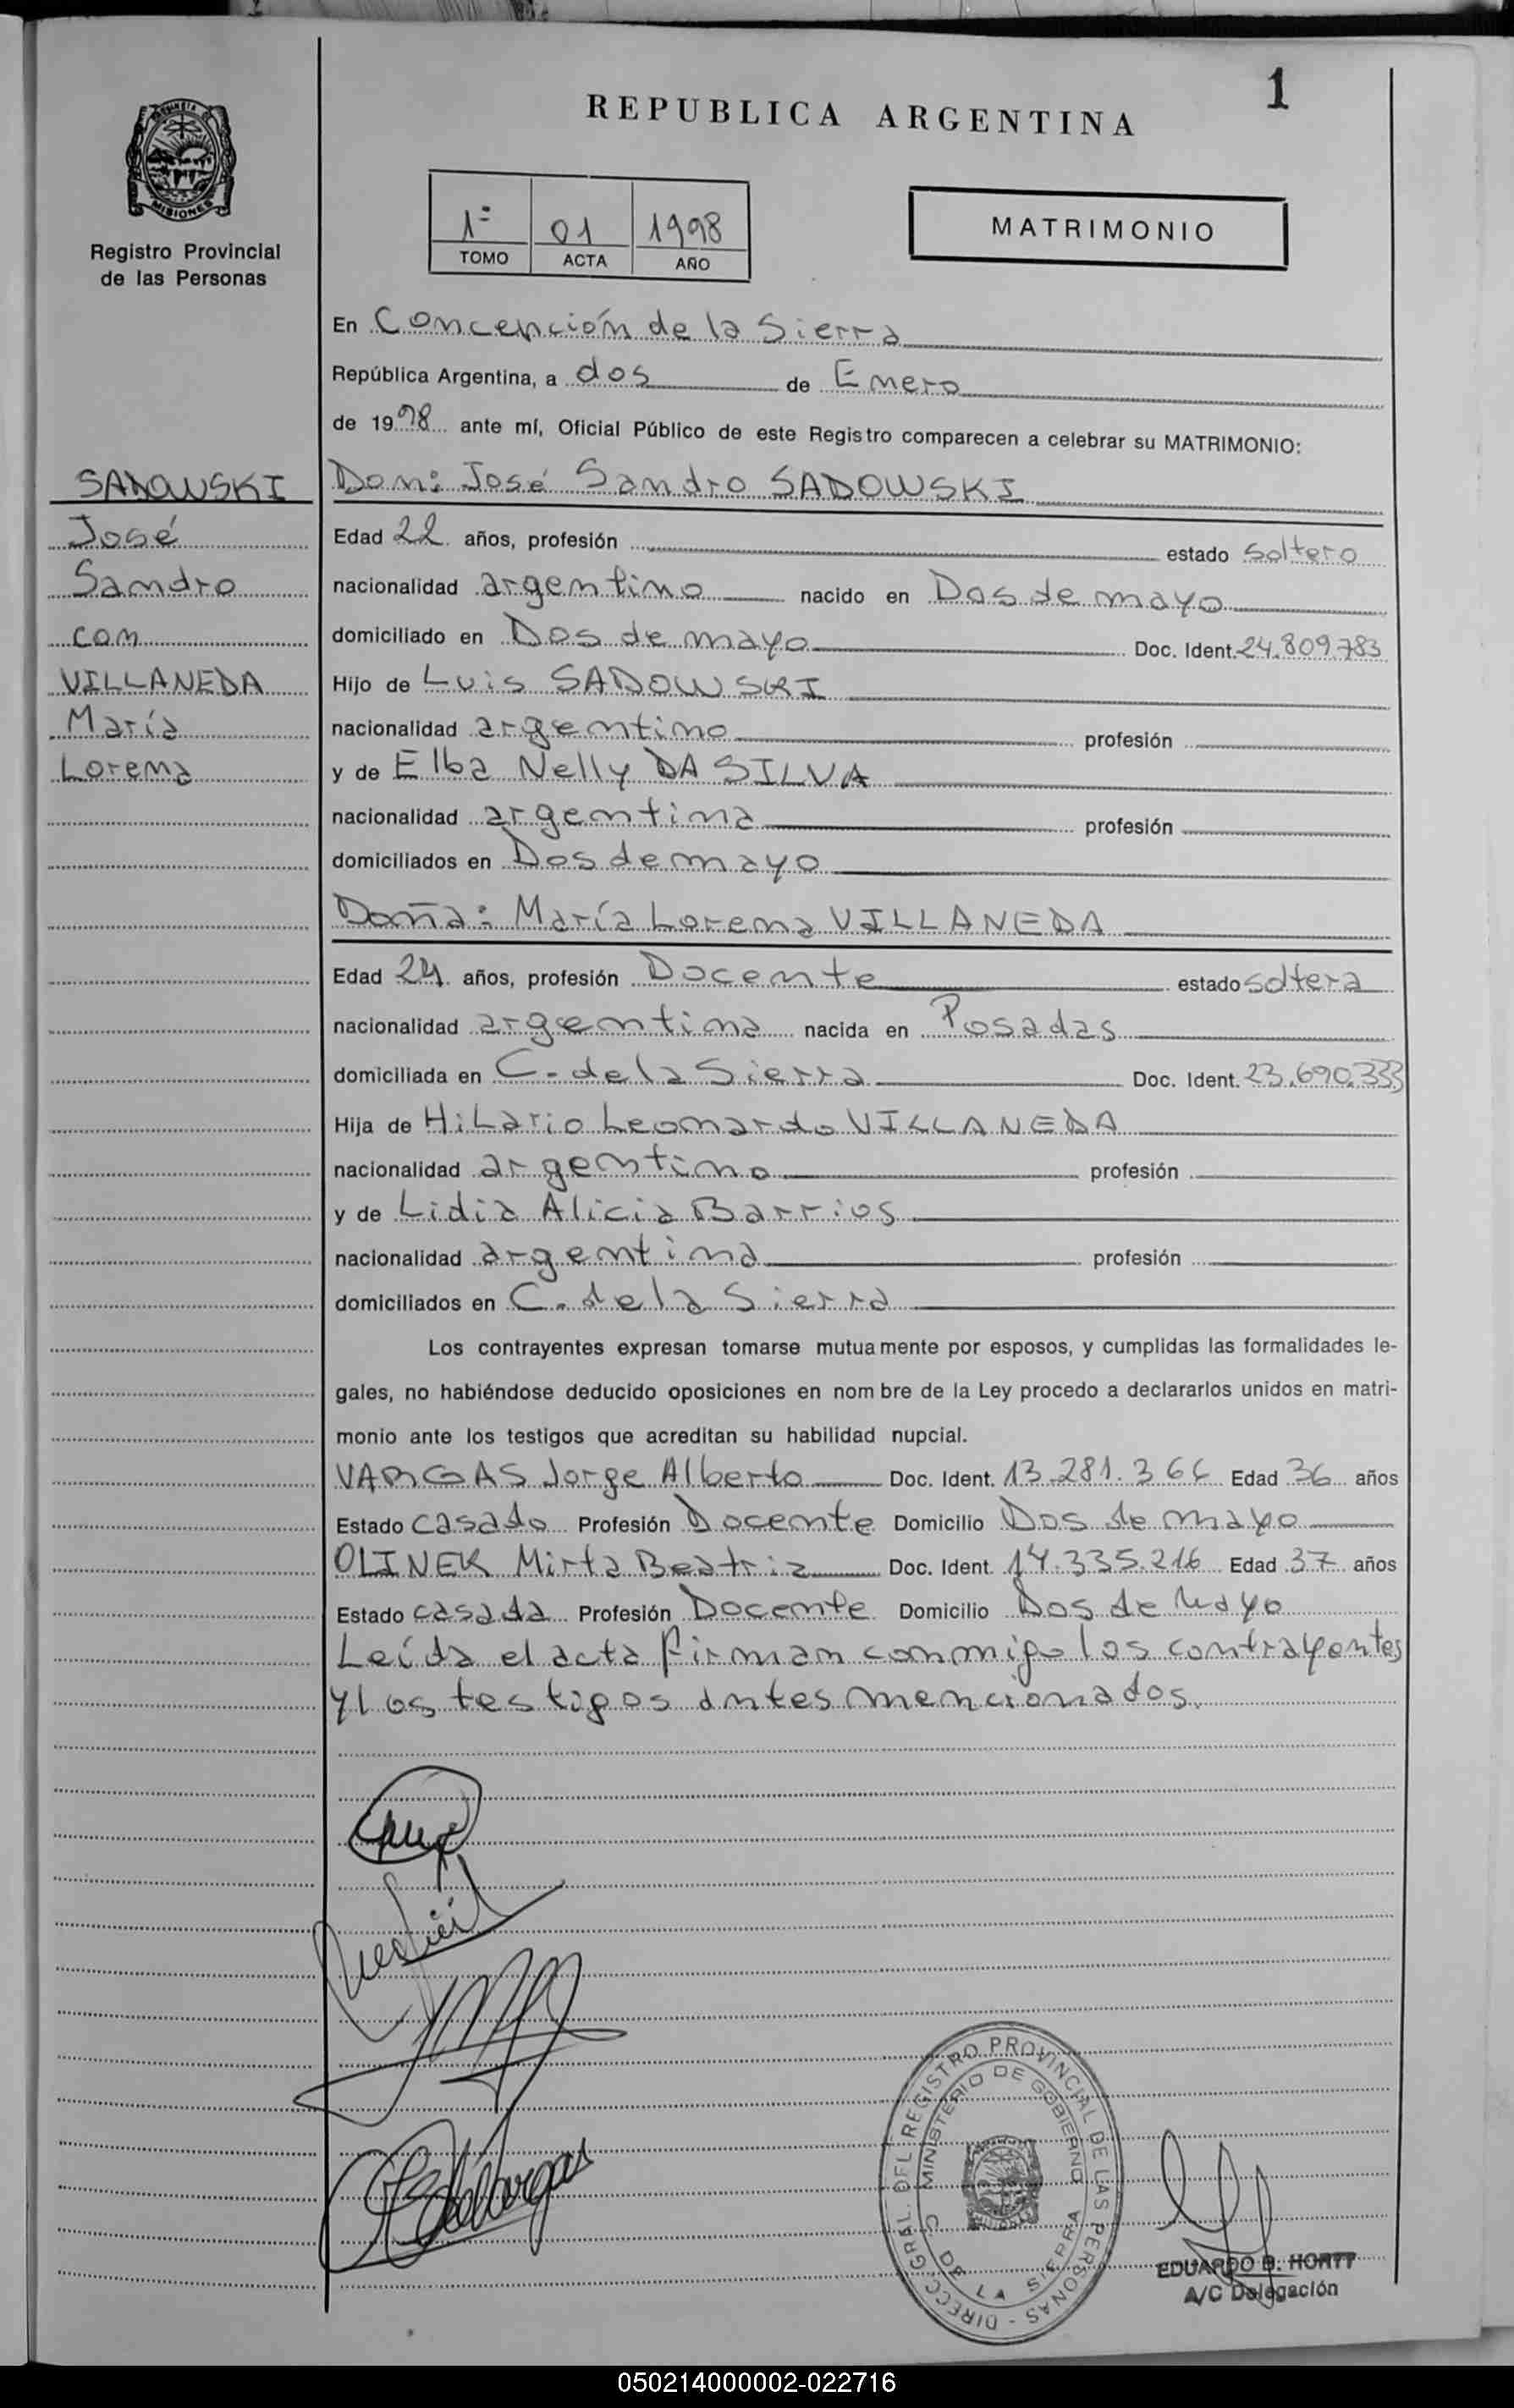 1
REPUBLICA ARGENTINA
MISIONES
Registro Provincial
de las Personas
1º 01 1998
TOMO ACTA AÑO
MATRIMONIO
En Concepción de la Sierra
República Argentina, a dos de Enero
de 1998 ante mí, Oficial Público de este Registro comparecen a celebrar su MATRIMONIO:
SADOWSKI
José
Sandro
con
VILLANEDA
María
Lorena
Don: José Sandro SADOWSKI
Edad 22 años, profesión estado soltero
nacionalidad argentino nacido en Dos de mayo
domiciliado en Dos de mayo Doc. Ident. 24.809.783
Hijo de Luis SADOWSKI
nacionalidad argentino profesión
y de Elba Nelly DA SILVA
nacionalidad argentina profesión
domiciliados en Dos de mayo
Doña: María Lorena VILLANEDA
Edad 24 años, profesión Docente estado soltera
nacionalidad argentina nacida en Posadas
domiciliada en C. de la Sierra Doc. Ident. 23.690.333
Hija de Hilario Leonardo VILLANEDA
nacionalidad argentino profesión
y de Lidia Alicia Barrios
nacionalidad argentina profesión
domiciliados en C. de la Sierra
Los contrayentes expresan tomarse mutuamente por esposos, y cumplidas las formalidades le-
gales, no habiéndose deducido oposiciones en nombre de la Ley procedo a declararlos unidos en matri-
monio ante los testigos que acreditan su habilidad nupcial.
VARGAS Jorge Alberto Doc. Ident. 13.281.366 Edad 36 años
Estado casado Profesión Docente Domicilio Dos de mayo
OLINEK Mirta Beatriz Doc. Ident. 14.335.216 Edad 37 años
Estado casada Profesión Docente Domicilio Dos de Mayo
Leída el acta firman conmigo los contrayentes
y los testigos antes mencionados.
DIRECC. GRAL. DEL REGISTRO PROVINCIAL DE LAS PERSONAS -
MINISTERIO DE GOBIERNO
C. DE LA SIERRA
EDUARDO B. HORTT
A/C Delegación
050214000002-022716